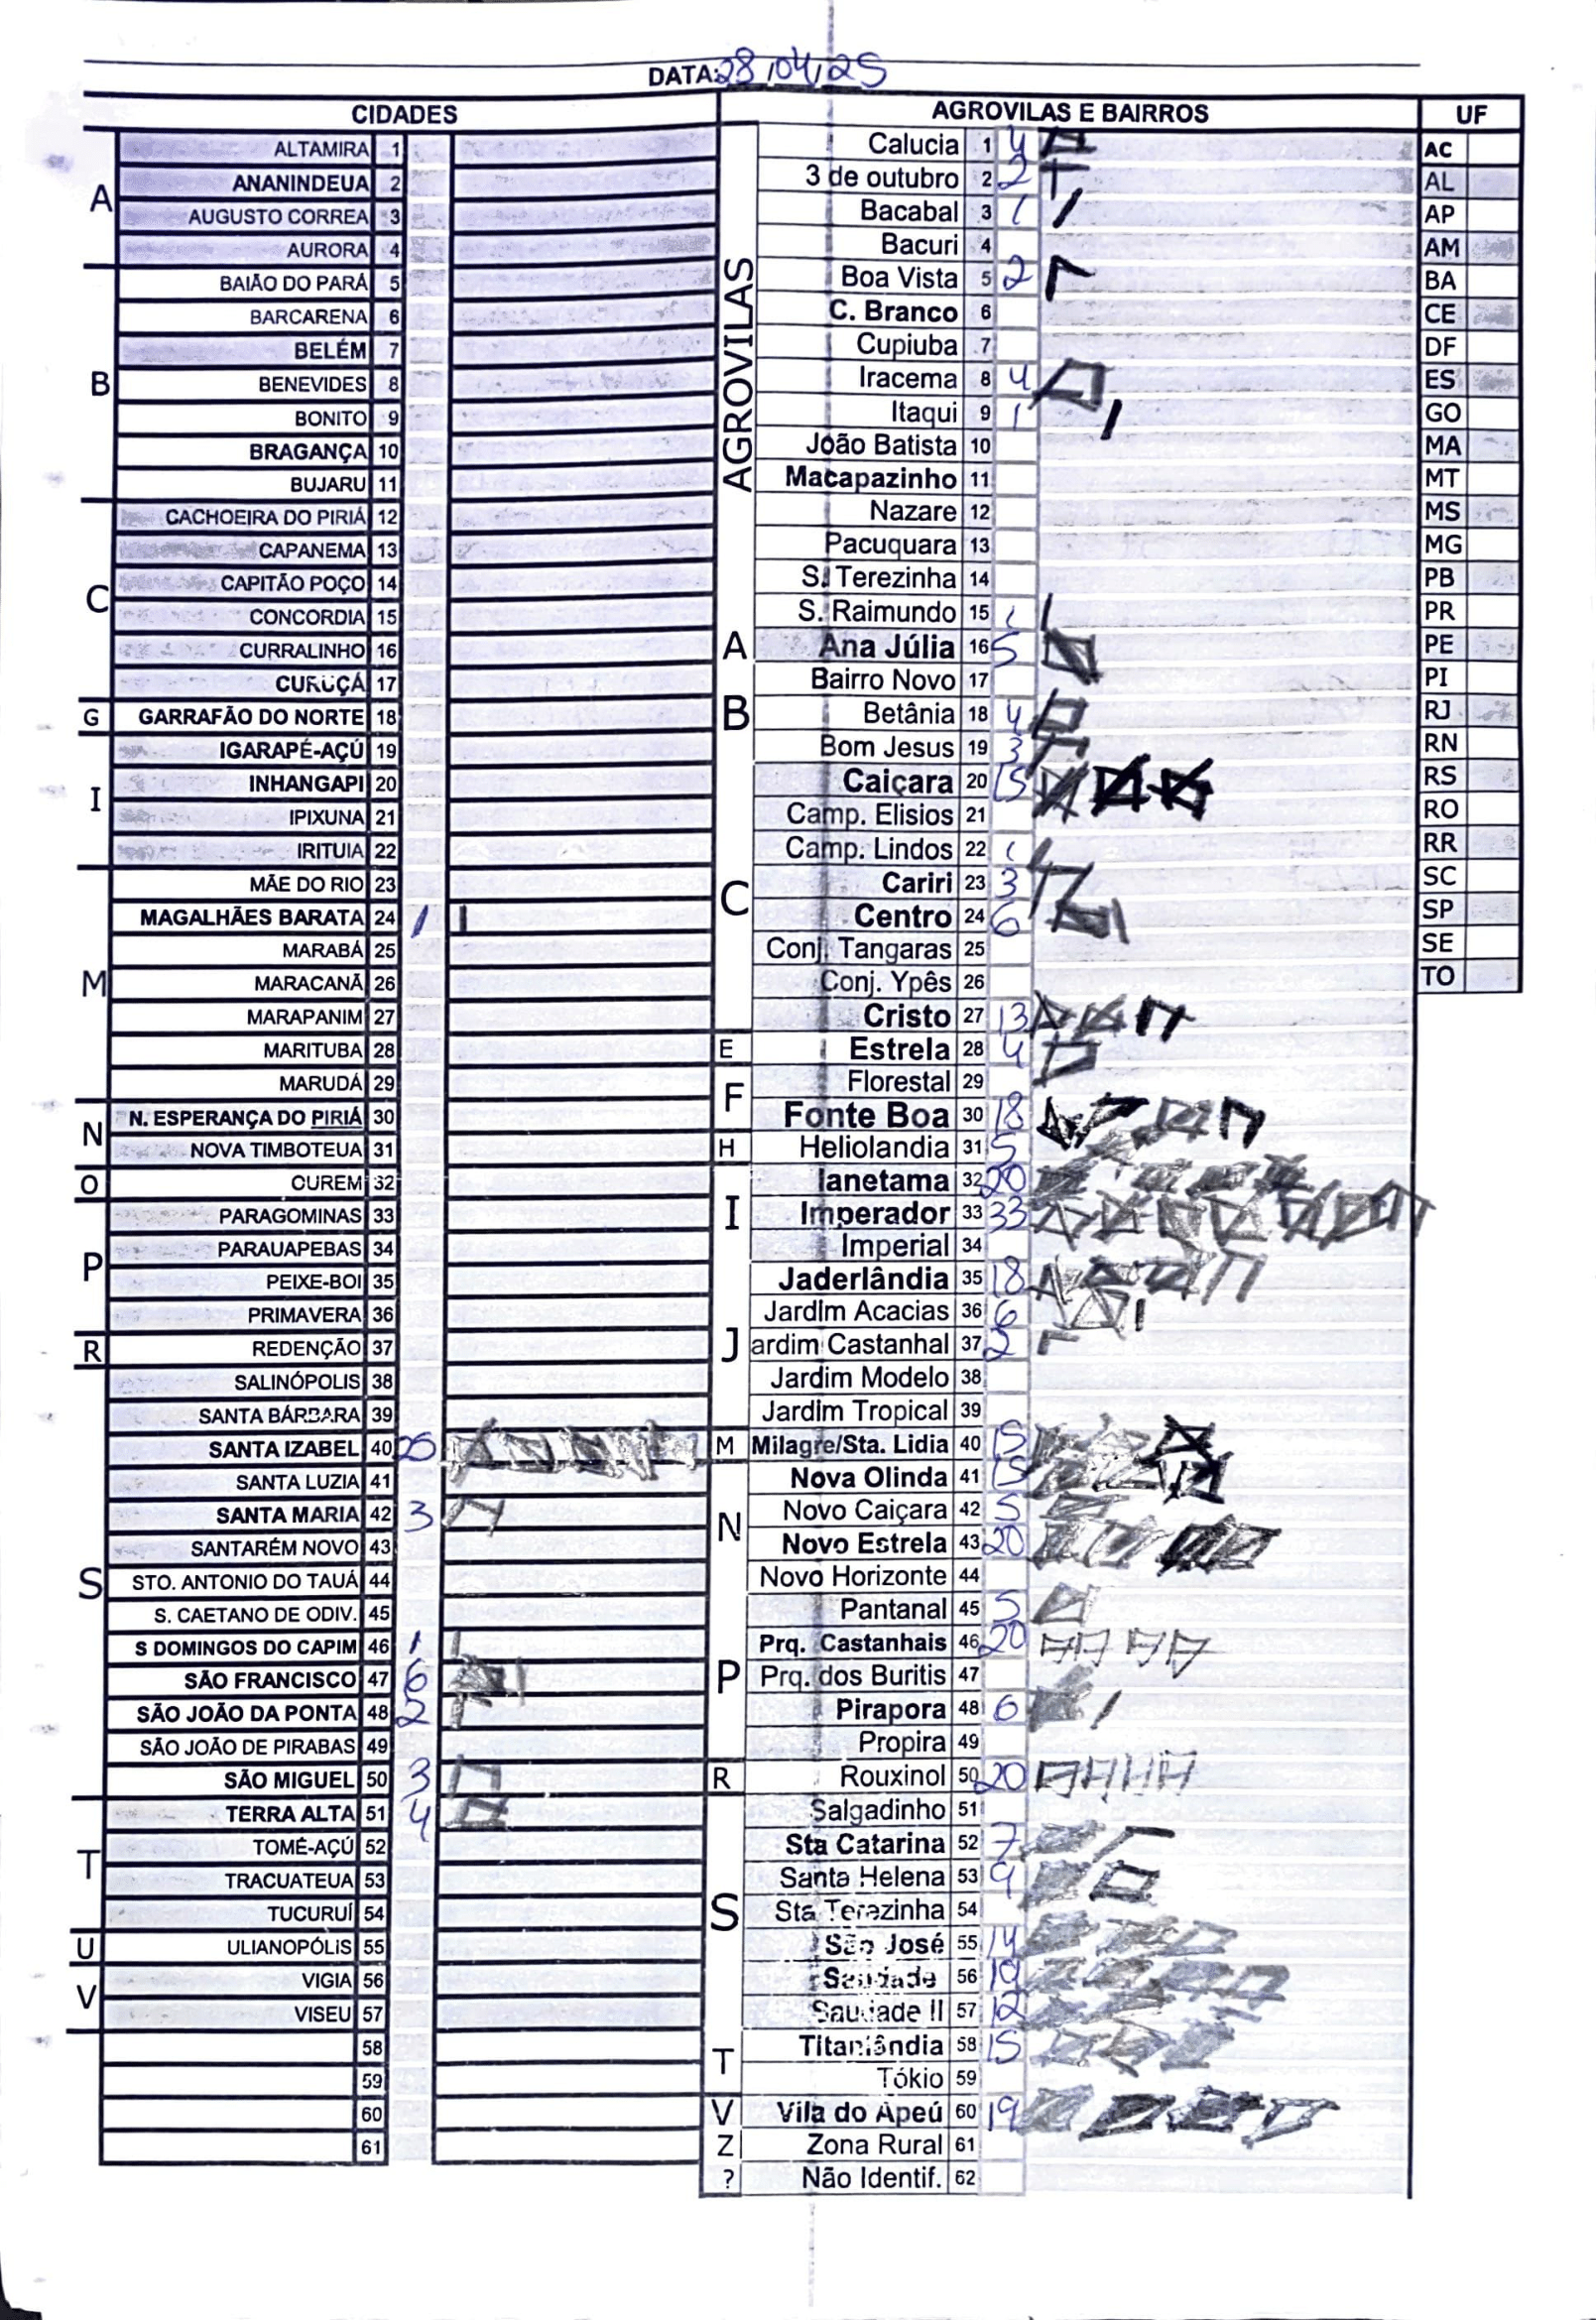 DATA: 28/04/25
CIDADES
A
ALTAMIRA 1
ANANINDEUA 2
AUGUSTO CORREA 3
AURORA 4
B
BAIÃO DO PARÁ 5
BARCARENA 6
BELÉM 7
BENEVIDES 8
BONITO 9
BRAGANÇA 10
BUJARU 11
C
CACHOEIRA DO PIRIÁ 12
CAPANEMA 13
CAPITÃO POÇO 14
CONCORDIA 15
CURRALINHO 16
CURUÇÁ 17
G
GARRAFÃO DO NORTE 18
I
IGARAPÉ-AÇÚ 19
INHANGAPI 20
IPIXUNA 21
IRITUIA 22
M
MÃE DO RIO 23
MAGALHÃES BARATA 24 1
MARABÁ 25
MARACANÃ 26
MARAPANIM 27
MARITUBA 28
MARUDÁ 29
N
N. ESPERANÇA DO PIRIÁ 30
NOVA TIMBOTEUA 31
O
OUREM 32
P
PARAGOMINAS 33
PARAUAPEBAS 34
PEIXE-BOI 35
PRIMAVERA 36
R
REDENÇÃO 37
S
SALINÓPOLIS 38
SANTA BÁRBARA 39
SANTA IZABEL 40 25
SANTA LUZIA 41
SANTA MARIA 42 3
SANTARÉM NOVO 43
STO. ANTONIO DO TAUÁ 44
S. CAETANO DE ODIV. 45
S DOMINGOS DO CAPIM 46 1
SÃO FRANCISCO 47 6
SÃO JOÃO DA PONTA 48 2
SÃO JOÃO DE PIRABAS 49
SÃO MIGUEL 50 3
T
TERRA ALTA 51 4
TOMÉ-AÇÚ 52
TRACUATEUA 53
TUCURUÍ 54
U
ULIANOPÓLIS 55
V
VIGIA 56
VISEU 57
58
59
60
61
AGROVILAS E BAIRROS
AGROVILAS
Calucia 1 4
3 de outubro 2 2
Bacabal 3 1
Bacuri 4
Boa Vista 5 2
C. Branco 6
Cupiuba 7
Iracema 8 4
Itaqui 9 1
João Batista 10
Macapazinho 11
Nazare 12
Pacuquara 13
S. Terezinha 14
S. Raimundo 15 1
A
Ana Júlia 16 5
B
Bairro Novo 17
Betânia 18 4
Bom Jesus 19 3
C
Caiçara 20 15
Camp. Elisios 21
Camp. Lindos 22 1
Cariri 23 3
Centro 24 6
Conj. Tangaras 25
Conj. Ypês 26
Cristo 27 13
E
Estrela 28 4
F
Florestal 29
Fonte Boa 30 18
H
Heliolandia 31 5
I
Ianetama 32 20
Imperador 33 33
Imperial 34
J
Jaderlândia 35 18
Jardim Acacias 36 6
ardim Castanhal 37 2
Jardim Modelo 38
Jardim Tropical 39
M
Milagre/Sta. Lidia 40 15
N
Nova Olinda 41 15
Novo Caiçara 42 5
Novo Estrela 43 20
Novo Horizonte 44
P
Pantanal 45 5
Prq. Castanhais 46 20
Prq. dos Buritis 47
Pirapora 48 6
Propira 49
R
Rouxinol 50 20
S
Salgadinho 51
Sta Catarina 52 7
Santa Helena 53 9
Sta Terezinha 54
São José 55 14
Saudade 56 19
Saudade II 57 12
T
Titanlândia 58 15
Tókio 59
V
Vila do Apeú 60 19
Z
Zona Rural 61
?
Não Identif. 62
UF
AC
AL
AP
AM
BA
CE
DF
ES
GO
MA
MT
MS
MG
PB
PR
PE
PI
RJ
RN
RS
RO
RR
SC
SP
SE
TO